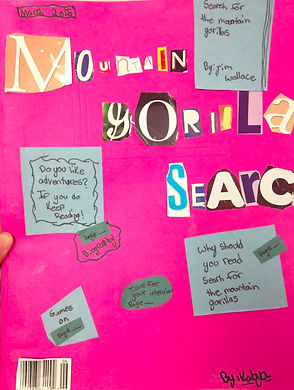 March 2010
Search for
the mountain
gorillas
By: Jim
Wallace
MOUNTAIN
GORILLA
SEARC
Do you like
adventures?
If you do
Keep
Reading!
Page
Biography
Why should
you read
Search for
the mountain
gorillas
Page
for
your interview
Page
Games
on
Page
By: Kaliya